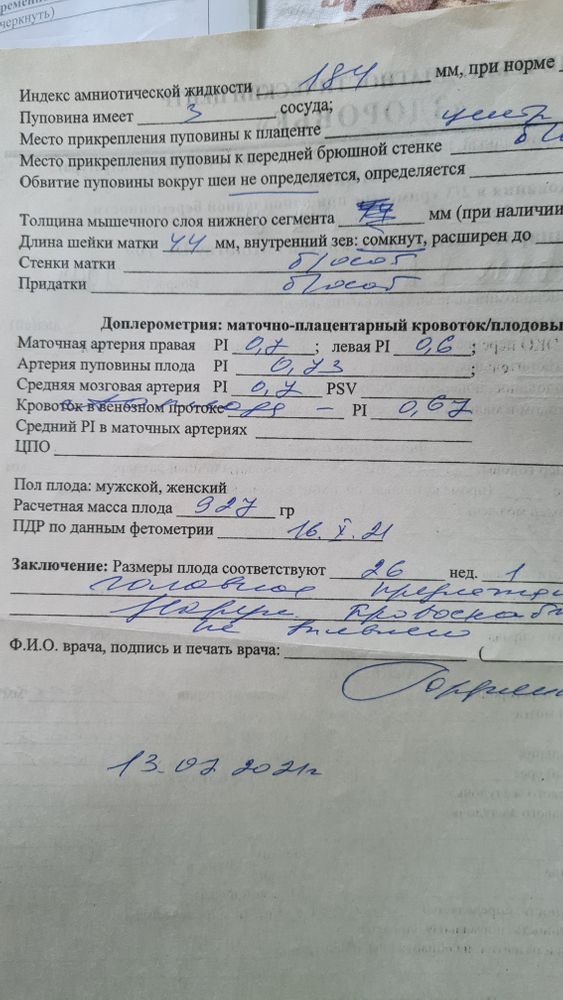 черкнуть)
Индекс амниотической жидкости 184 мм, при норме
Пуповина имеет 3 сосуда;
Место прикрепления пуповины к плаценте центр
Место прикрепления пуповиы к передней брюшной стенке б/о
Обвитие пуповины вокруг шеи не определяется, определяется
Толщина мышечного слоя нижнего сегмента мм (при наличии
Длина шейки матки 44 мм, внутренний зев: сомкнут, расширен до
Стенки матки б/особ
Придатки б/особ
Доплерометрия: маточно-плацентарный кровоток/плодовы
Маточная артерия правая PI 0,7 ; левая PI 0,6 ;
Артерия пуповины плода PI 0,73 ;
Средняя мозговая артерия PI 0,7 PSV
Кровоток в венозном протоке – PI 0,67
Средний PI в маточных артериях
ЦПО
Пол плода: мужской, женский
Расчетная масса плода 927 гр
ПДР по данным фетометрии 16.X.21
Заключение: Размеры плода соответствуют 26 нед. 1
головное предлежа
Наруш. кровоснаб
не выявлено
Ф.И.О. врача, подпись и печать врача: (
13.07.2021г